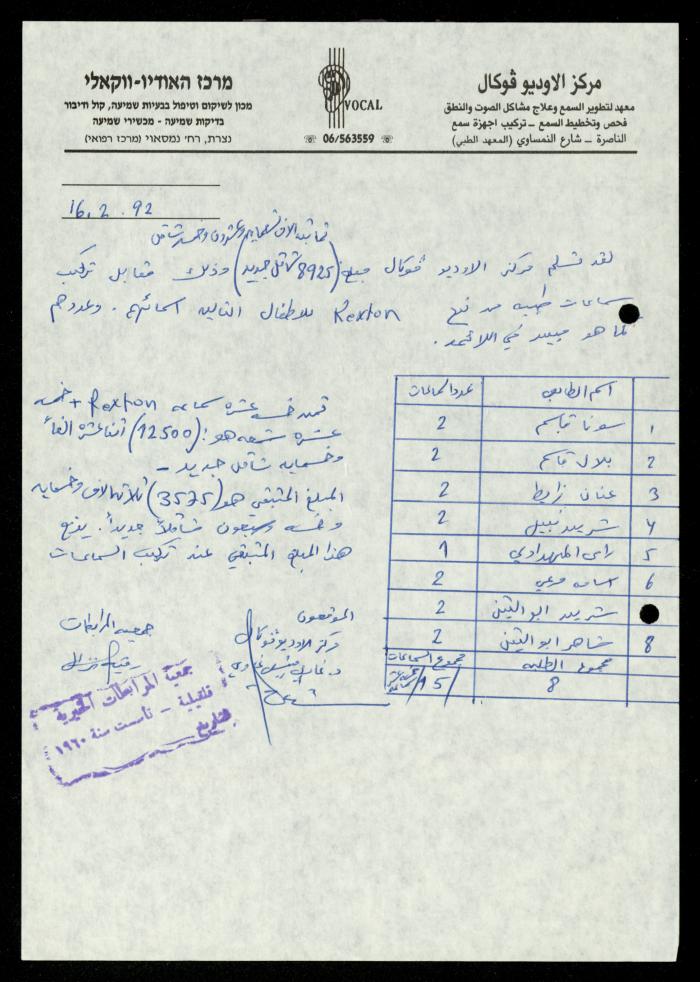 מרכז האודיו-ווקאלי
מכון לשיקום וטיפול בבעיות שמיעה, קול ודיבור
בדיקות שמיעה - מכשירי שמיעה
נצרת, רח' נמסאוי (מרכז רפואי)
VOCAL
☏ 06/563559 ☏
مركز الاوديو ڤوكال
معهد لتطوير السمع وعلاج مشاكل الصوت والنطق
فحص وتخطيط السمع – تركيب اجهزة سمع
الناصرة – شارع النمساوي (المعهد الطبي)
16.2.92
ثمانية الاف تسعماية وعشرون وخمسة شاقل
لقد تسلم مركز الاوديو ڤوكال مبلغ (8925 شاقل جديد) وذلك مقابل تركيب
سماعات طبية من نوع Rexton للاطفال التالية اسمائهم. وعددهم
كما هو مبين في اللائحة.
اسم الطالب عدد السماعات
1 سونا قاسم 2
2 بلال قاسم 2
3 عنان 2
4 شريد نبيل 2
5 1
6 اسامه مرعي 2
شريد ابو التين 2
8 شاهر ابو التين 2
مجموع الطلبه مجموع السماعات
8 15
ثمن خمسة عشرة سماعه Rexton + خمسة
عشرة هو: (12500) اثنا عشرة الفاً
وخمسمايه شاقل جديد –
المبلغ المتبقي هو (3575) ثلاثة الاف وخمسمايه
وخمسه وسبعون شاقلاً جديداً. يدفع
هذا المبلغ المتبقي عند تركيب السماعات
الموقعون
مركز الاوديو ڤوكال
جمعيه المرابطات
جمعية المرابطات الخيرية
قلقيلية – تأسست سنة ١٩٦٠
التاريخ